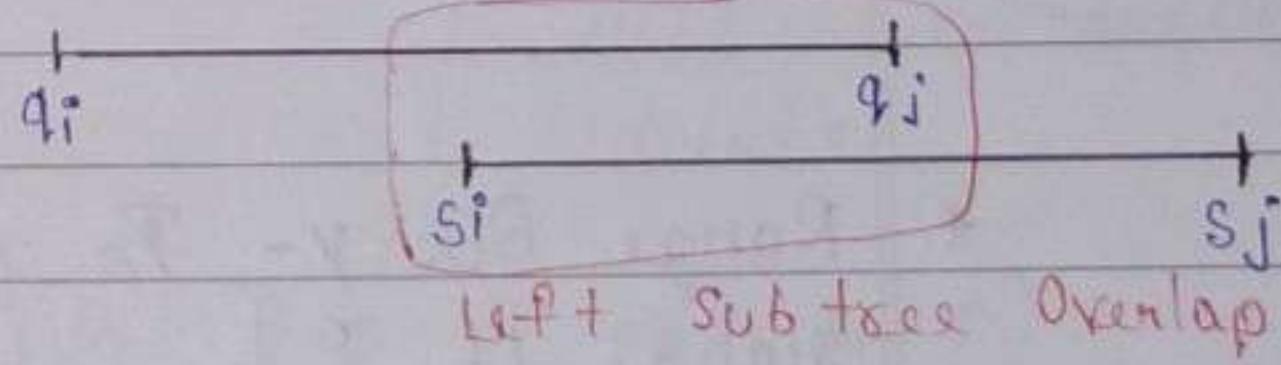 qi qj
si sj
Left Subtree Overlap